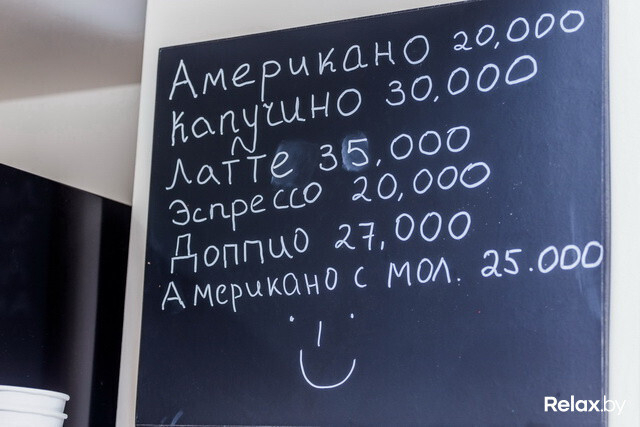 Американо 20,000
Капучино 30,000
Латте 35,000
Эспрессо 20,000
Доппио 27,000
Американо с мол. 25.000
Relax.by